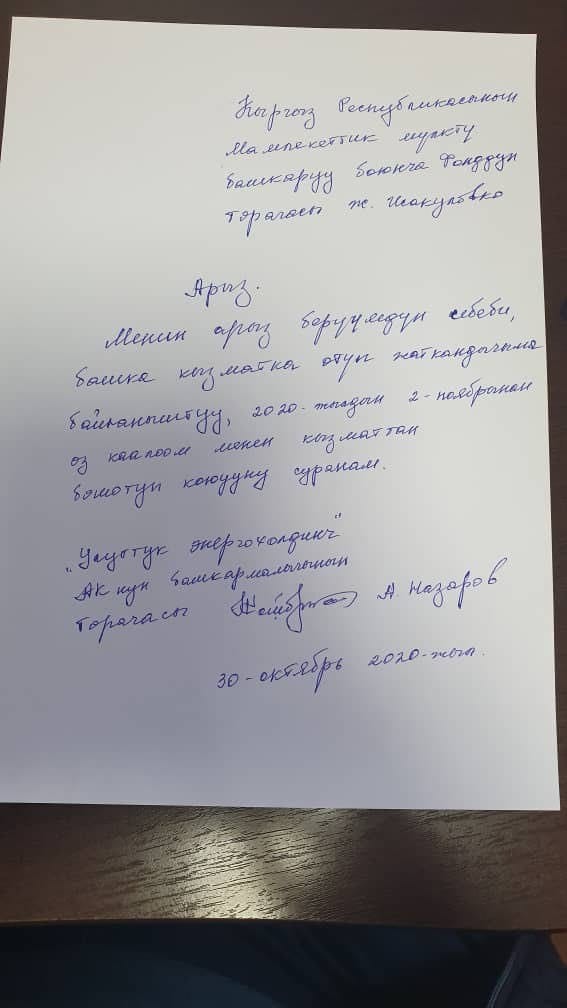 Кыргыз Республикасынын
Мамлекеттик мүлктү
башкаруу боюнча Фонддун
төрагасы Ж. Исакуловко
Арыз.
Менин арыз беруумдун себеби,
башка кызматка өтүп жаткандыгыма
байланыштуу, 2020-жылдын 2-ноябрынан
өз каалоом менен кызматтан
бошотуп коюууну суранам.
"Улуттук энергохолдинг"
АКнун башкармалыгынын
төрагасы А Назаров
30-октябрь 2020-жыл.